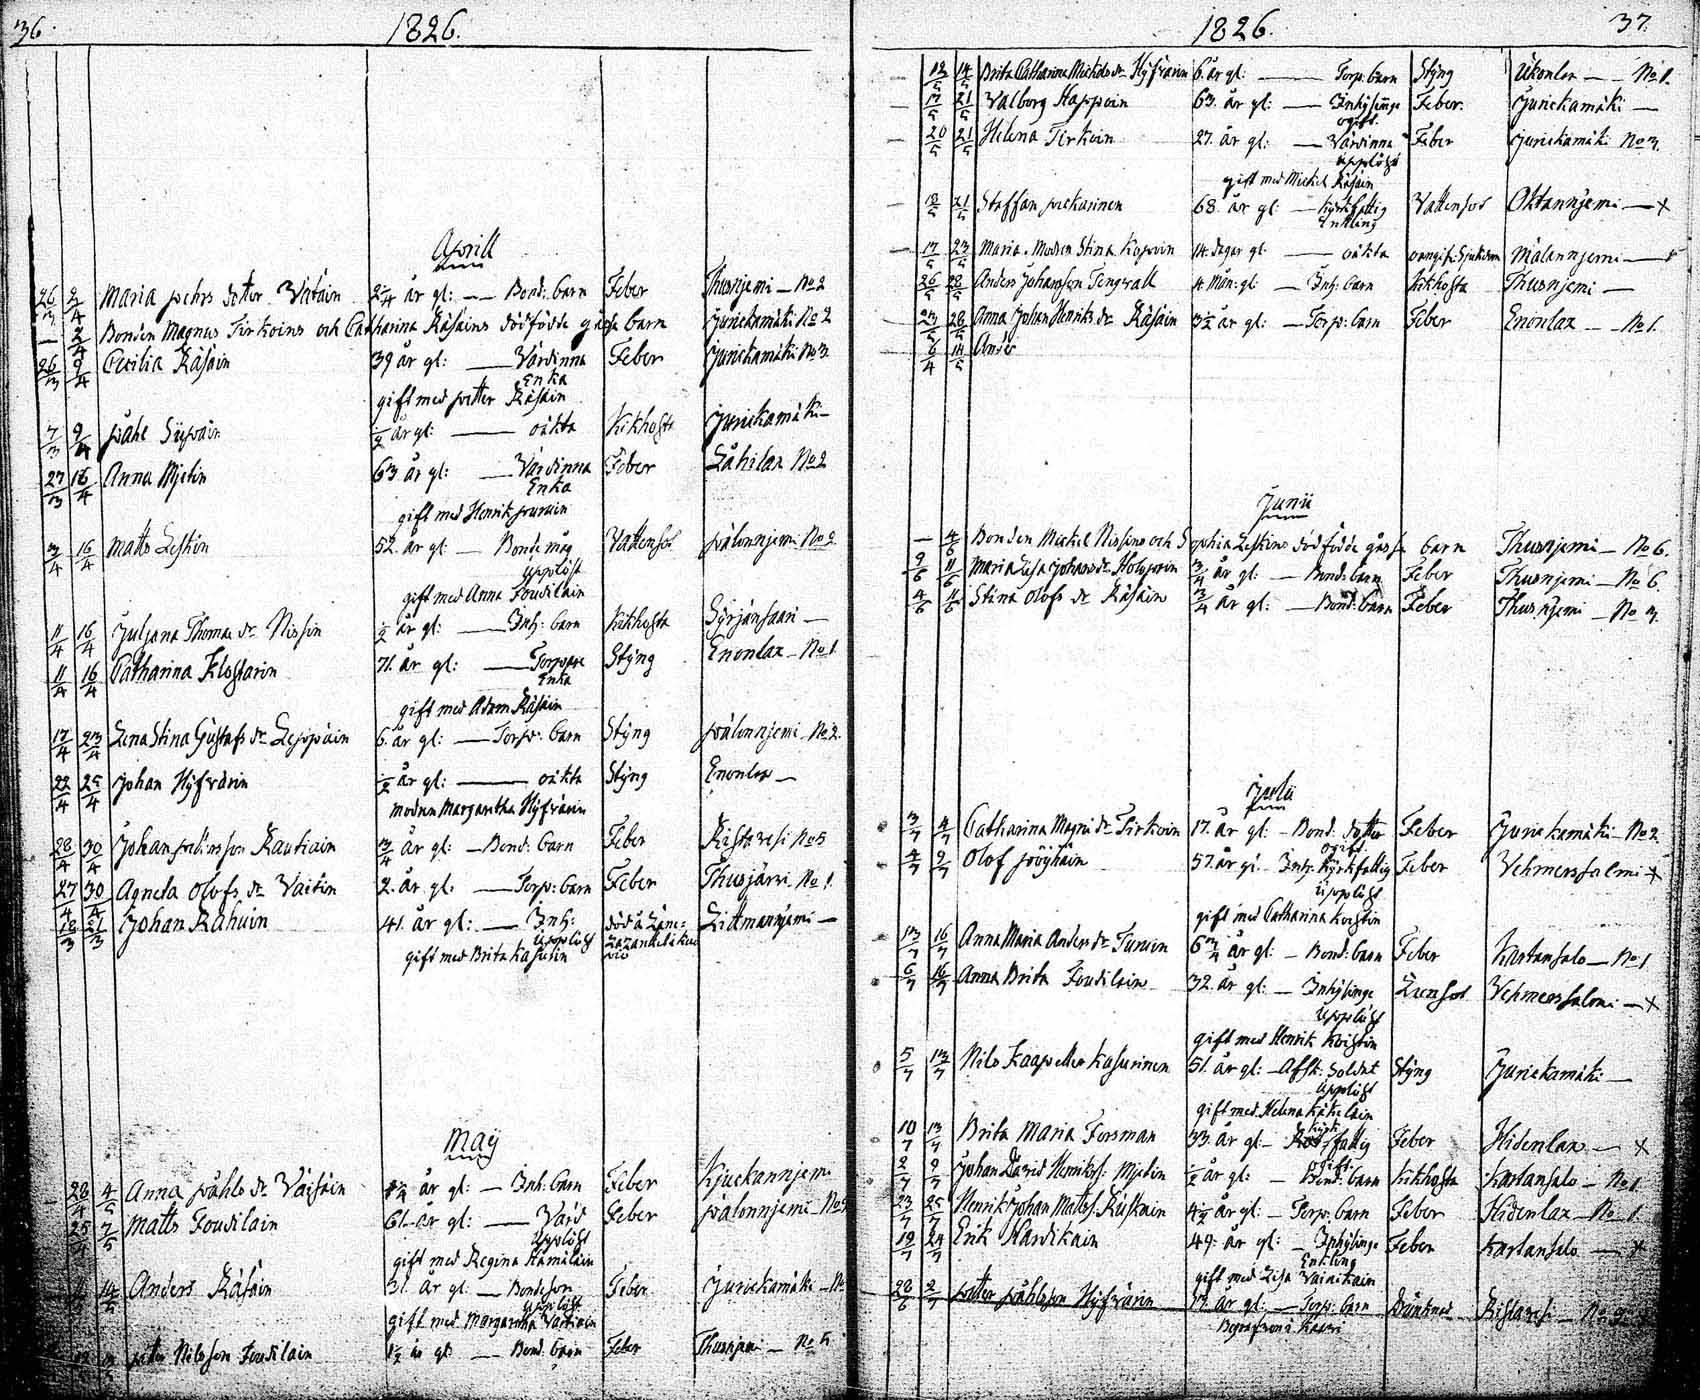 36.
1826.
Aprill
26/3 2/4 Maria pehrs dotter Vätäin 2 1/4 år gl: — Bond: barn Feber Thusnjemi — No 2
— 2/4 Bonden Magnus Tirkoins och Catharina Räsäins dödfödde gåsse barn Jurickamäki No 2
26/3 9/4 Cecilia Räsäin 39 år gl: — Värdinna Feber Jurickamäki No 3
Enka
gift med petter Räsäin
7/3 9/4 påhl 1/2 år gl: — oäkta Kikhosta Jurickamäki —
27/3 16/4 Anna Mjetin 63 år gl: — Värdinna Feber Låhilax No 2
Enka
gift med Henrik
3/4 16/4 Matts Leskin 52. år gl: — Bonde måg Vattensot pålonnjemi No 2
Upplöst
gift med Anna Toudilain
11/4 16/4 Juljana Thomæ dr Nissin 1/2 år gl: — Inh: barn Kikhosta Syrjänsaari —
11/4 16/4 Catharina Klostarin 71. år gl: — Torpare Styng Enonlax — No 1
Enka
gift med Adam Räsäin
17/4 23/4 Lena Stina Gustafs dr Leppäin 6. år gl: — Torp: barn Styng pålonnjemi No 2.
22/4 25/4 Johan Hyfvärin 1/2 år gl: — oäkta Styng Enonlax —
modren Margaretha Hyfvärin
28/4 30/4 Johan Rautiain 3/4 år gl: — Bond: barn Feber Ristavesi No 5
27/4 30/4 Agneta Olofs dr Vaitin 2. år gl: — Torp: barn Feber Thusjärvi — No 1.
18/3 21/3 Johan Rahuin 41. år gl: — Inh: död å Läne= Littmannjemi —
Upplöst Lazarettet i
gift med Brita Kasurin
May
28/4 4/5 Anna påhls dr Väisäin år gl: — Inh: barn Feber Kjuckannjemi
25/4 7/5 Matts Toudilain 61. år gl: — Värd Feber pålonnjemi — No
Upplöst
gift med Regina Hämäläin
14/5 Anders Räsäin 31. år gl: — Bondeson Feber Jurickamäki — No
Upplöst
gift med Margaretha Vartiain
Nilsson Toudilain 1 1/2 år gl: — Bond: barn Feber Thusnjemi — No 5
1826.
37.
12/5 14/5 Brita Catharina Mickels dr Hyfvärin 6. år gl: — Torp: barn Styng Ukonlax — No 1.
17/5 21/5 Valborg Happoin 63. år gl: — Inhysinge Feber. Jurickamäki —
ogift.
20/5 21/5 Helena Tirkoin 27. år gl: — Värdinna Feber Jurickamäki No 3.
Upplöst
gift med Mickel Räsäin
18/5 21/5 Staffan pickarinen 68. år gl: — Kyrkfattig Vattensot Oktannjemi — x
Enkling
17/5 23/5 Maria. Modren Stina Kopoin 14. dagar gl — oäkta oangif: Sjukdom Målannjemi —
26/5 28/5 Anders Johansson Tengvall 4 Mån: gl: — Inh: barn Kikhosta Thusnjemi —
23/5 28/5 Anna Johan Henriks dr Räsäin 3 1/2 år gl: — Torp: barn Feber Enonlax — No 1.
6/4 14/5 Ander
Junii
— 4/6 Bonden Mickel Nissins och Sophia Leskins dödfödde gåsse barn Thusnjemi — No 6.
9/6 11/6 Maria Lisa Johans dr Holopain 3/4 år gl: — Bond: barn Feber Thusnjemi — No 6.
4/6 11/6 Stina Olofs dr Räsäin 3/4 år gl: — Bond: barn Feber Thusnjemi — No 3.
Julii
3/7 4/7 Catharina Magni dr Tirkoin 17. år gl — Bond: dotter Feber Jurickamäki — No 2.
ogift
4/7 9/7 Olof pöyhäin 57. år gl. Inh: Kyrkfattig Feber Vehmerssalmi x
Upplöst
gift med Catharina Koistin
13/7 16/7 Anna Maria Anders dr Turuin 6 3/4 år gl: — Bond: barn Feber Kartansalo — No 1
6/7 16/7 Anna Brita Toudilain 32. år gl: — Inhysinge Lunsot Vehmerssalmi — x
Upplöst
gift med Henrik Koistin
5/7 13/7 Nils Kaapetter Kasurinen 51. år gl: — Afsk: Soldat Styng Jurickamäki —
Upplöst
gift med Helena Käkelain
10/7 13/7 Brita Maria Forsman 33. år gl — Kyrk fattig Feber Hidenlax — x
ogift
2/7 9/7 Johan David Henrikss: Mjetin 1/2 år gl: — Bond: barn Kikhosta Kartansalo — No 1.
23/7 25/7 Henrik Johan Mattss: Ruskain 4 1/2 år gl: — Torp: barn Feber Hidenlax — No 1.
19/7 24/7 Erik Hardikain 49. år gl: — Inhysinge Feber Kartansalo — x
Enkling
gift med Lisa Vainikain
28/6 2/7 petter påhlsson Hyfvärin år gl: — Torp: barn Drunknad Ristavesi — No
Begrafven i Kaavi